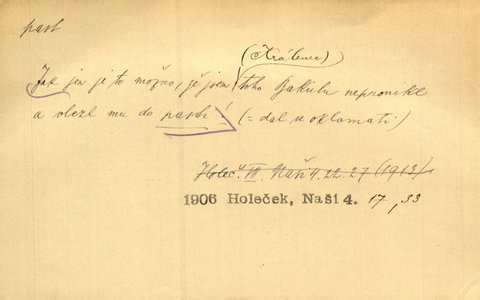 past
(Králenec)
Jak jen je to možno, že jsem toho Bakulu nepronikl
a vlezl mu do pasti! (= dal se oklamati)
Holeč. III. Naši 4. 22. 27 (1913)
1906 Holeček, Naši 4. 17, 33